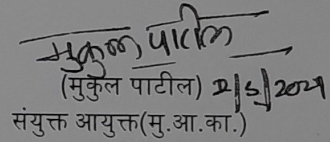 मुकुल पाटील
(मुकुल पाटील) 2/5/2024
संयुक्त आयुक्त(मु.आ.का.)